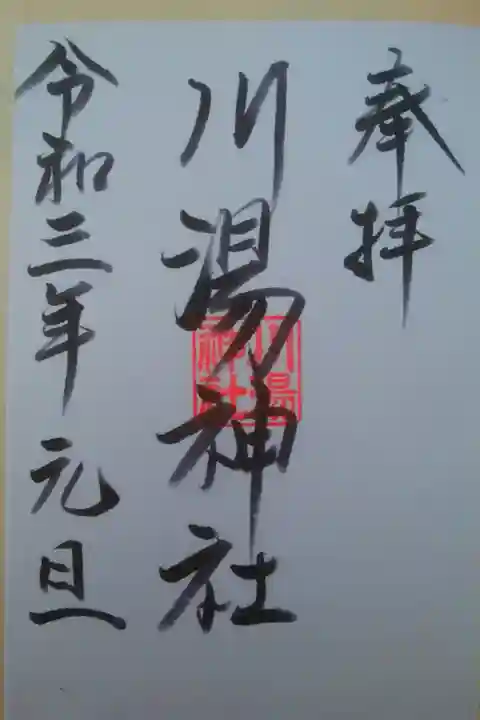 奉拝
川湯神社
川湯
神社
令和三年元旦